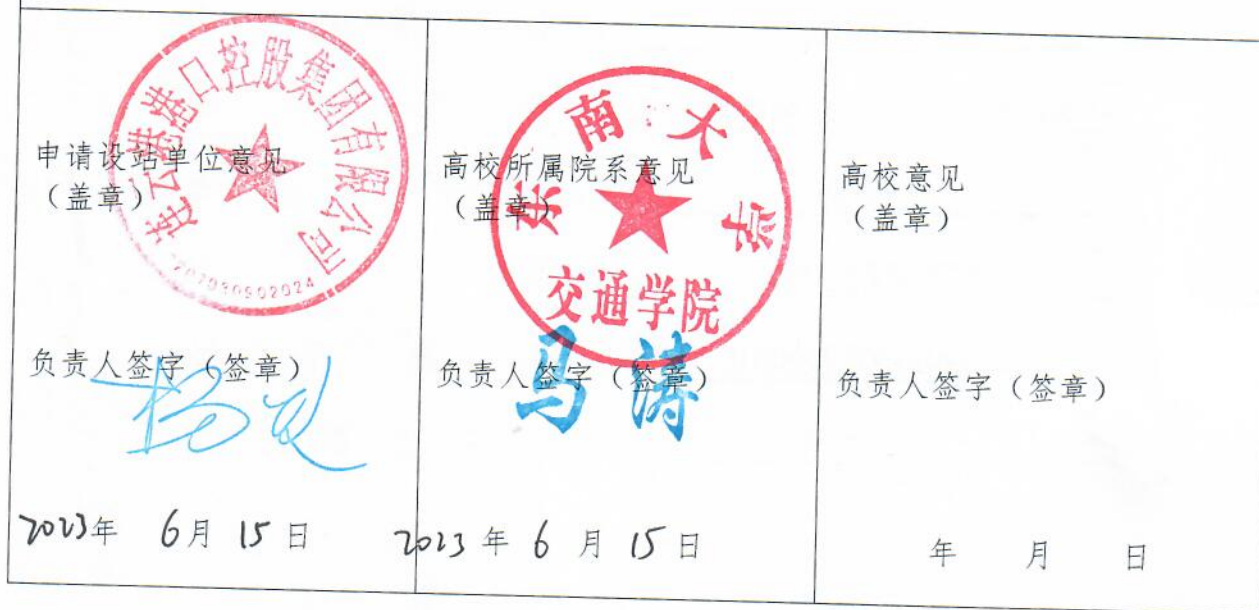 申请设站单位意见
（盖章）
连云港港口控股集团有限公司
负责人签字（签章）
2023年 6月 15日
高校所属院系意见
（盖章）
东南大学
交通学院
负责人签字（签章）
马涛
2023年 6月 15日
高校意见
（盖章）
负责人签字（签章）
年 月 日